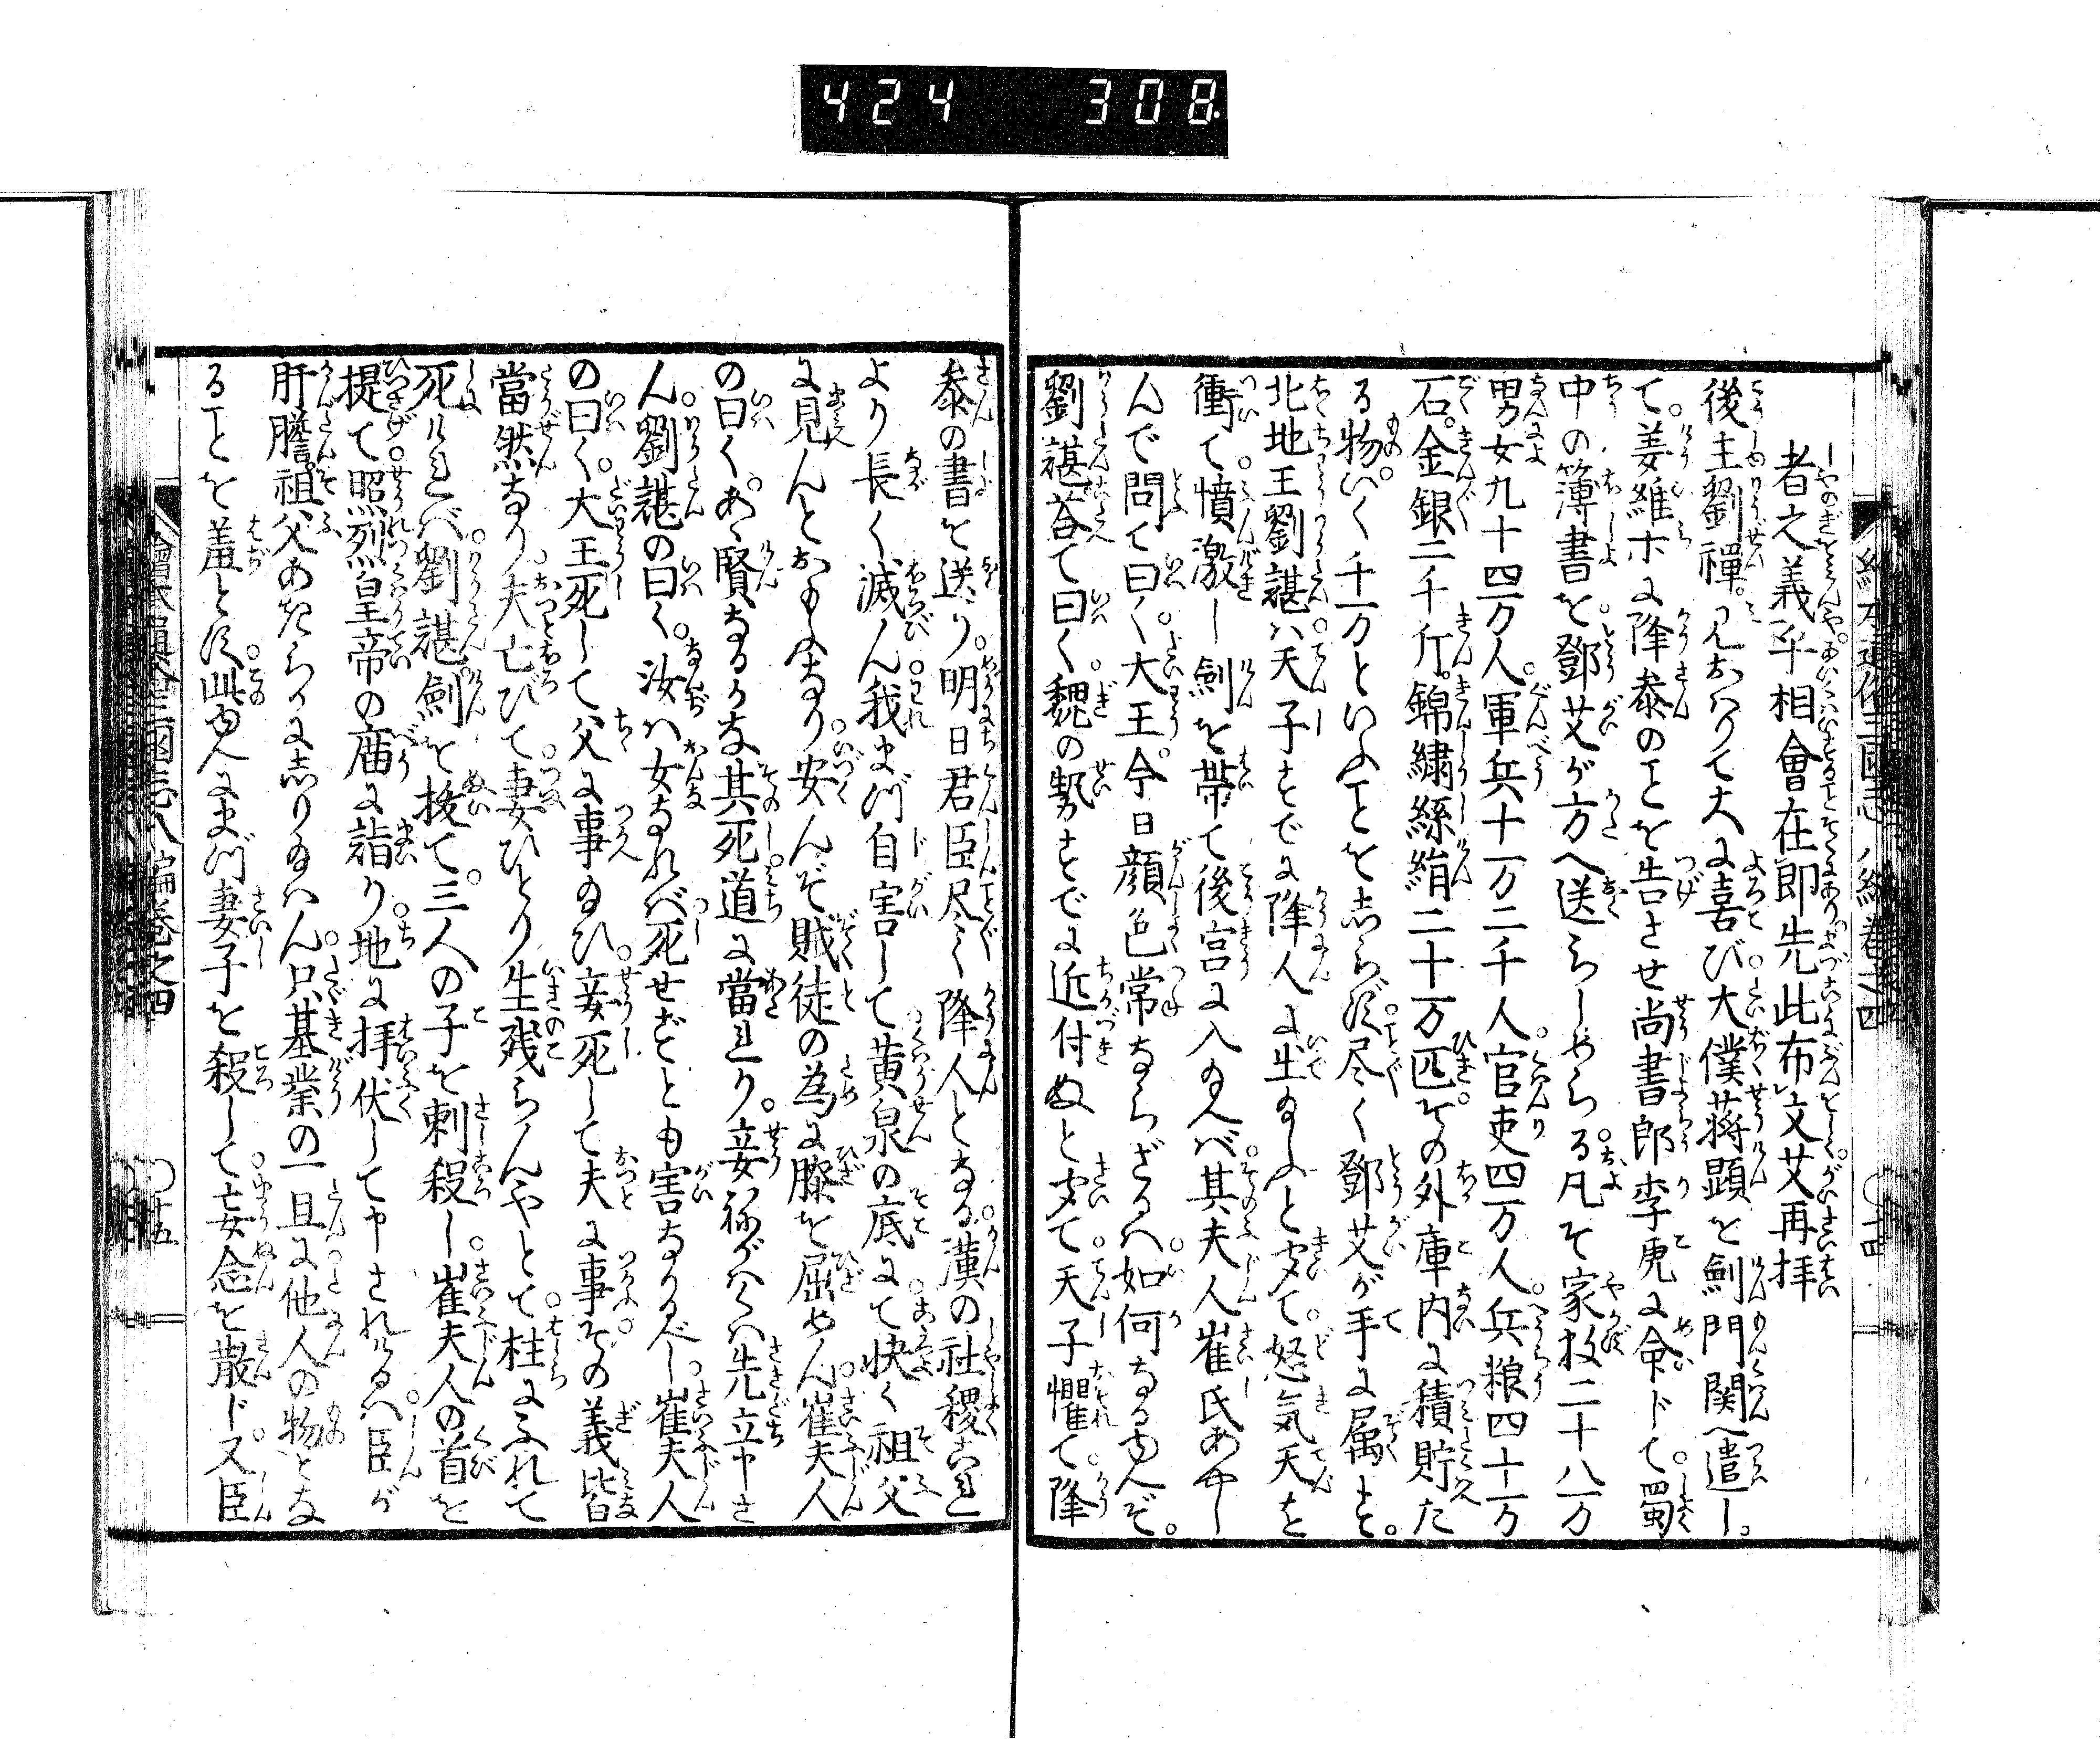 424 308
者之義乎相會在即先此布文艾再拝
後主劉禪見おハりて大に喜び大僕蒋顕を劍門関へ遣し。
て姜維ホに降参のヿを告させ尚書郎李虎に命ドて。蜀
中の簿書を鄧艾が方へ送らしめらる。凡そ家数二十八万
男女九十四万人。軍兵十万二千人。官吏四万人。兵粮四十万
石。金銀二千斤。錦繍絲絹二十万匹。その外庫内に積貯た
る物。いく千万といふヿを志らず。尽く鄧艾が手に属す。
北地王劉諶ハ天子すでに降人に出給ふと聞て。怒気天を
衝て憤激し劍を帯て後宮に入給へバ。其夫人崔氏あやし
んで問て曰く。大王。今日顔色常ならざるハ。如何なるゆへぞ。
劉諶荅て曰く。魏の勢すでに近付ぬと聞て。天子懼て。降
参の書を送り。明日君臣尽く降人となる。漢の社稷これ
より長く滅ん。我まづ自害して黄泉の底にて快く祖父
に見んとおもふなり。安んぞ賊徒の為に膝を屈せん。崔夫人
の曰く。あゝ賢なるかな其死道に當れり。妾ねがハくハ先立申さ
ん。劉諶の曰く。汝ハ女なれバ死せずとも害なかるべし。崔夫人
の曰く。大王死して父に事給ひ。妾死して夫に事。その義皆
當然なり。夫亡びて妻ひとり生残らんやとて。柱にふれて
死けれバ。劉諶劍を抜て。三人の子を刺殺し。崔夫人の首を
提て。照烈皇帝の庿に詣り。地に拝伏して申されけるハ。臣が
肝膽。祖父あきらかに志り給ハん。只基業の一旦に他人の物とな
るヿを羞とす。此ゆへにまづ妻子を殺して。妄念を散ド。又臣